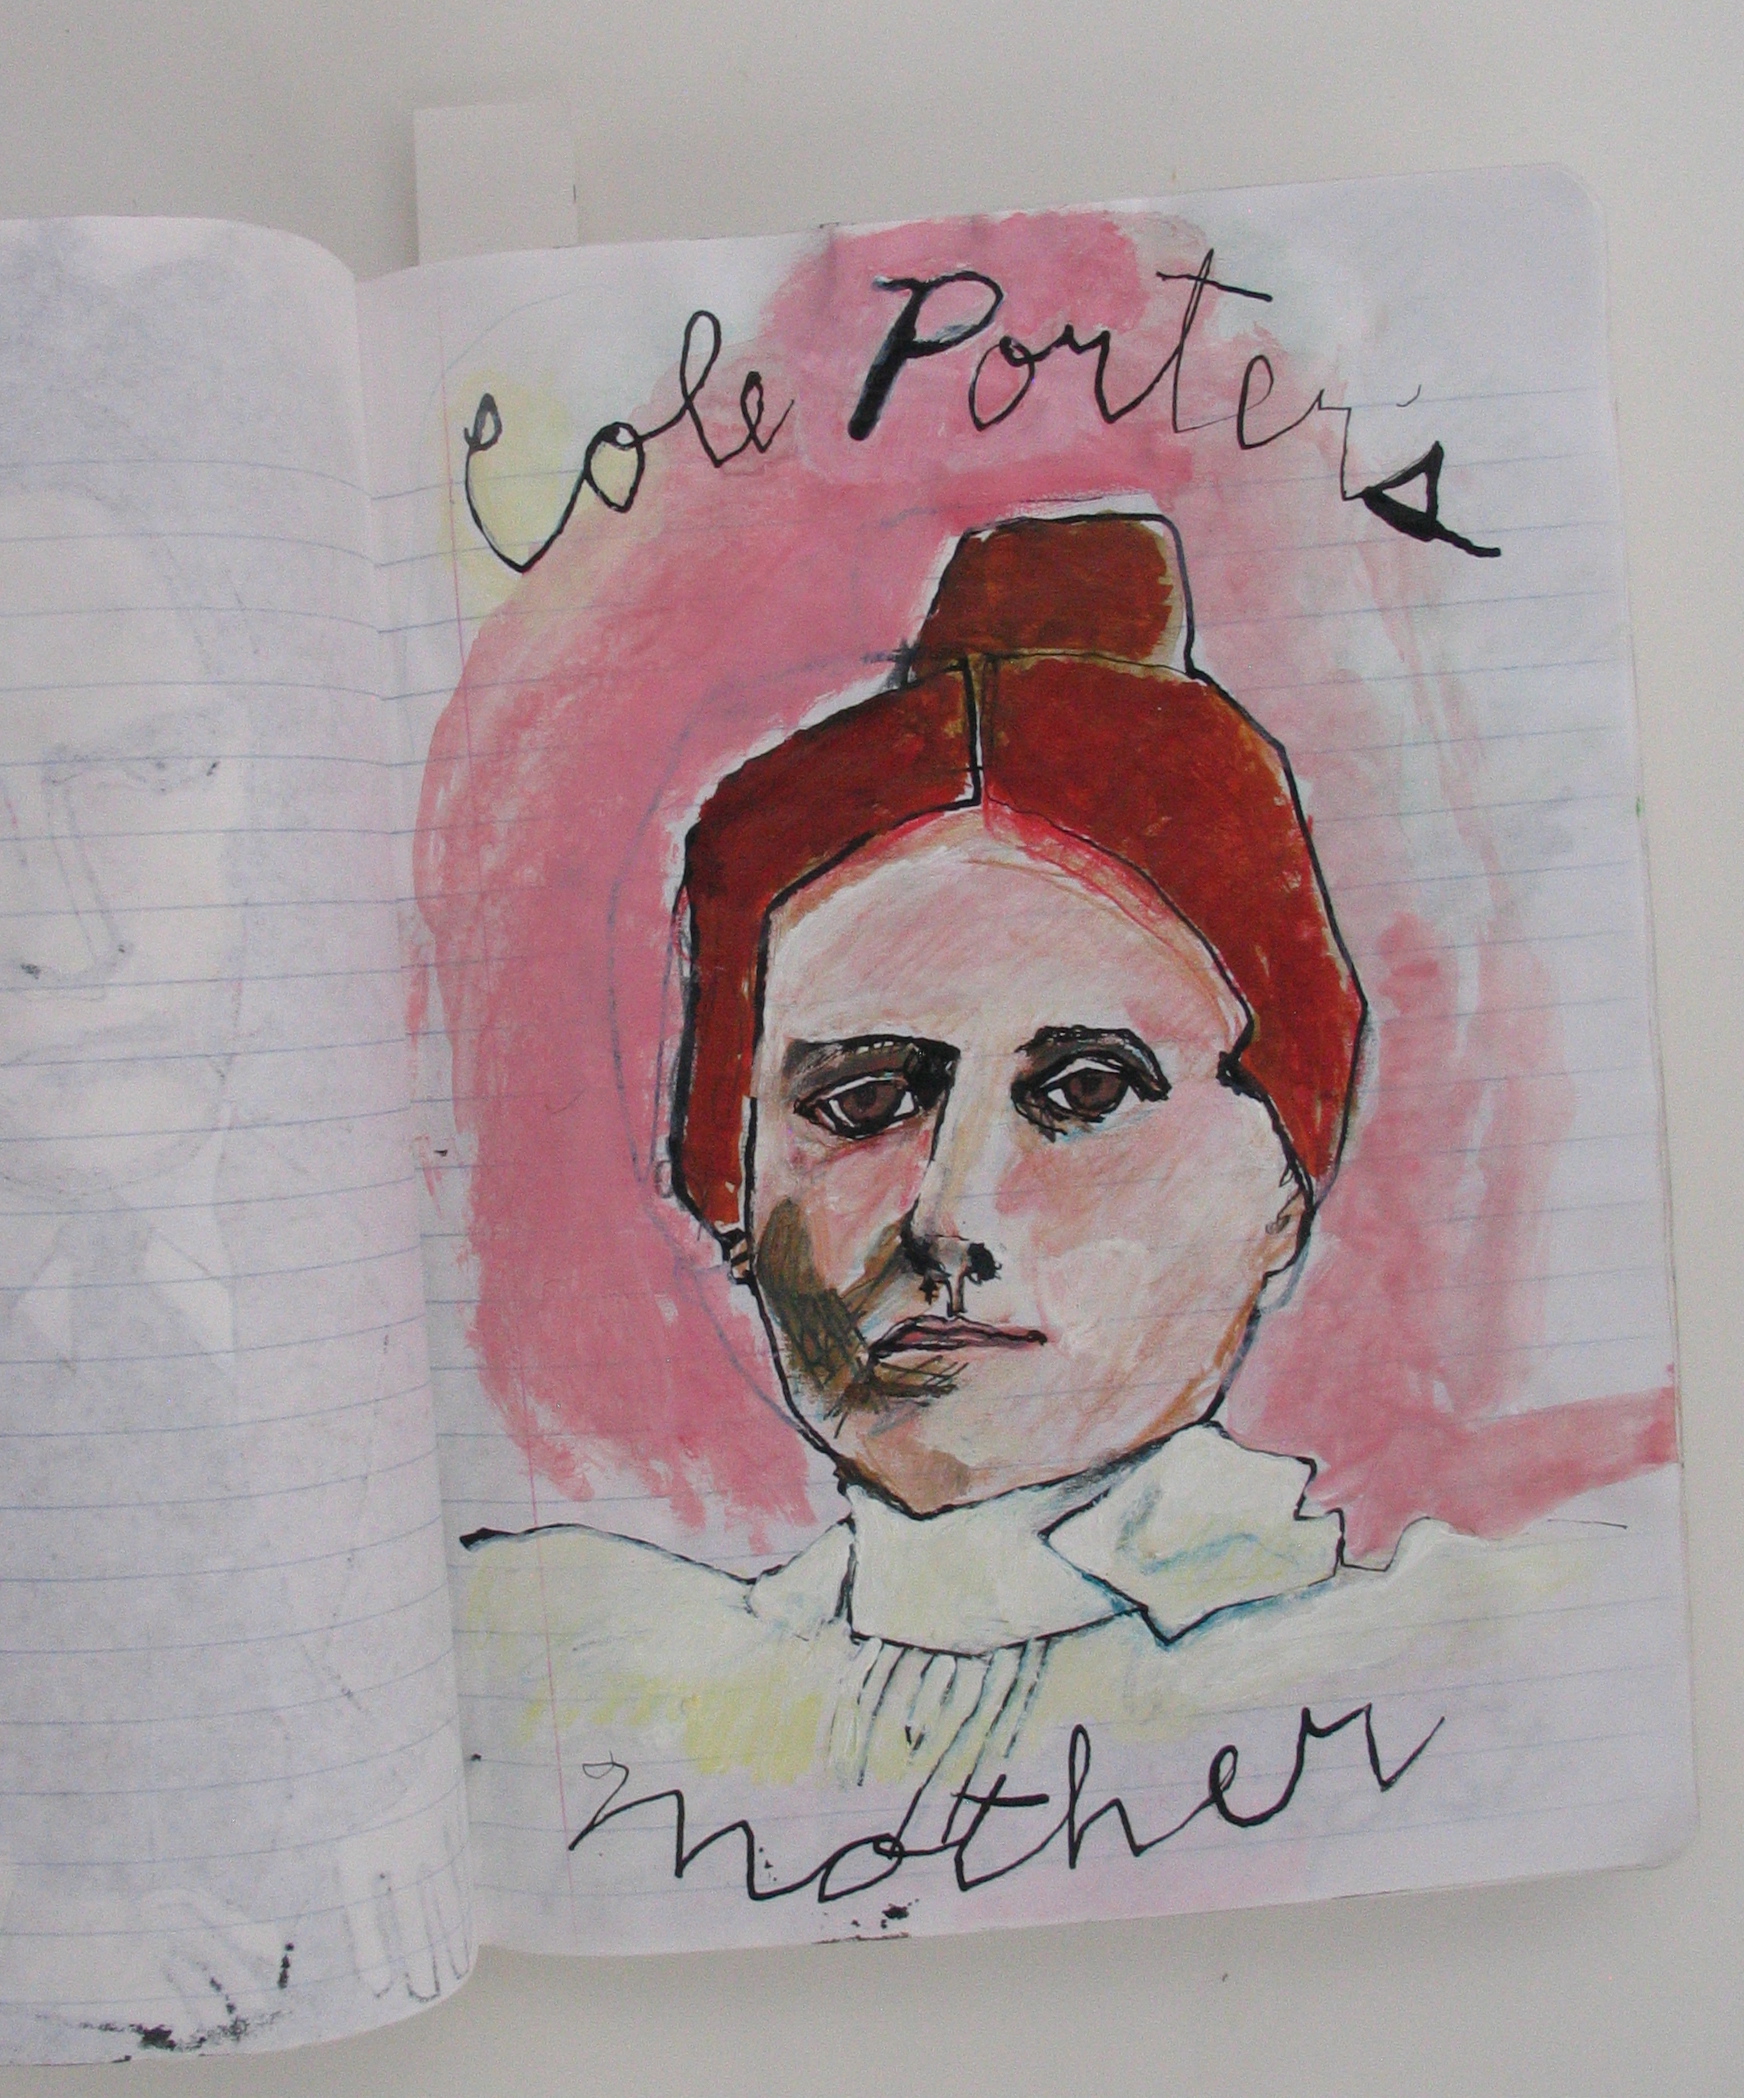 Cole Porter's
mother